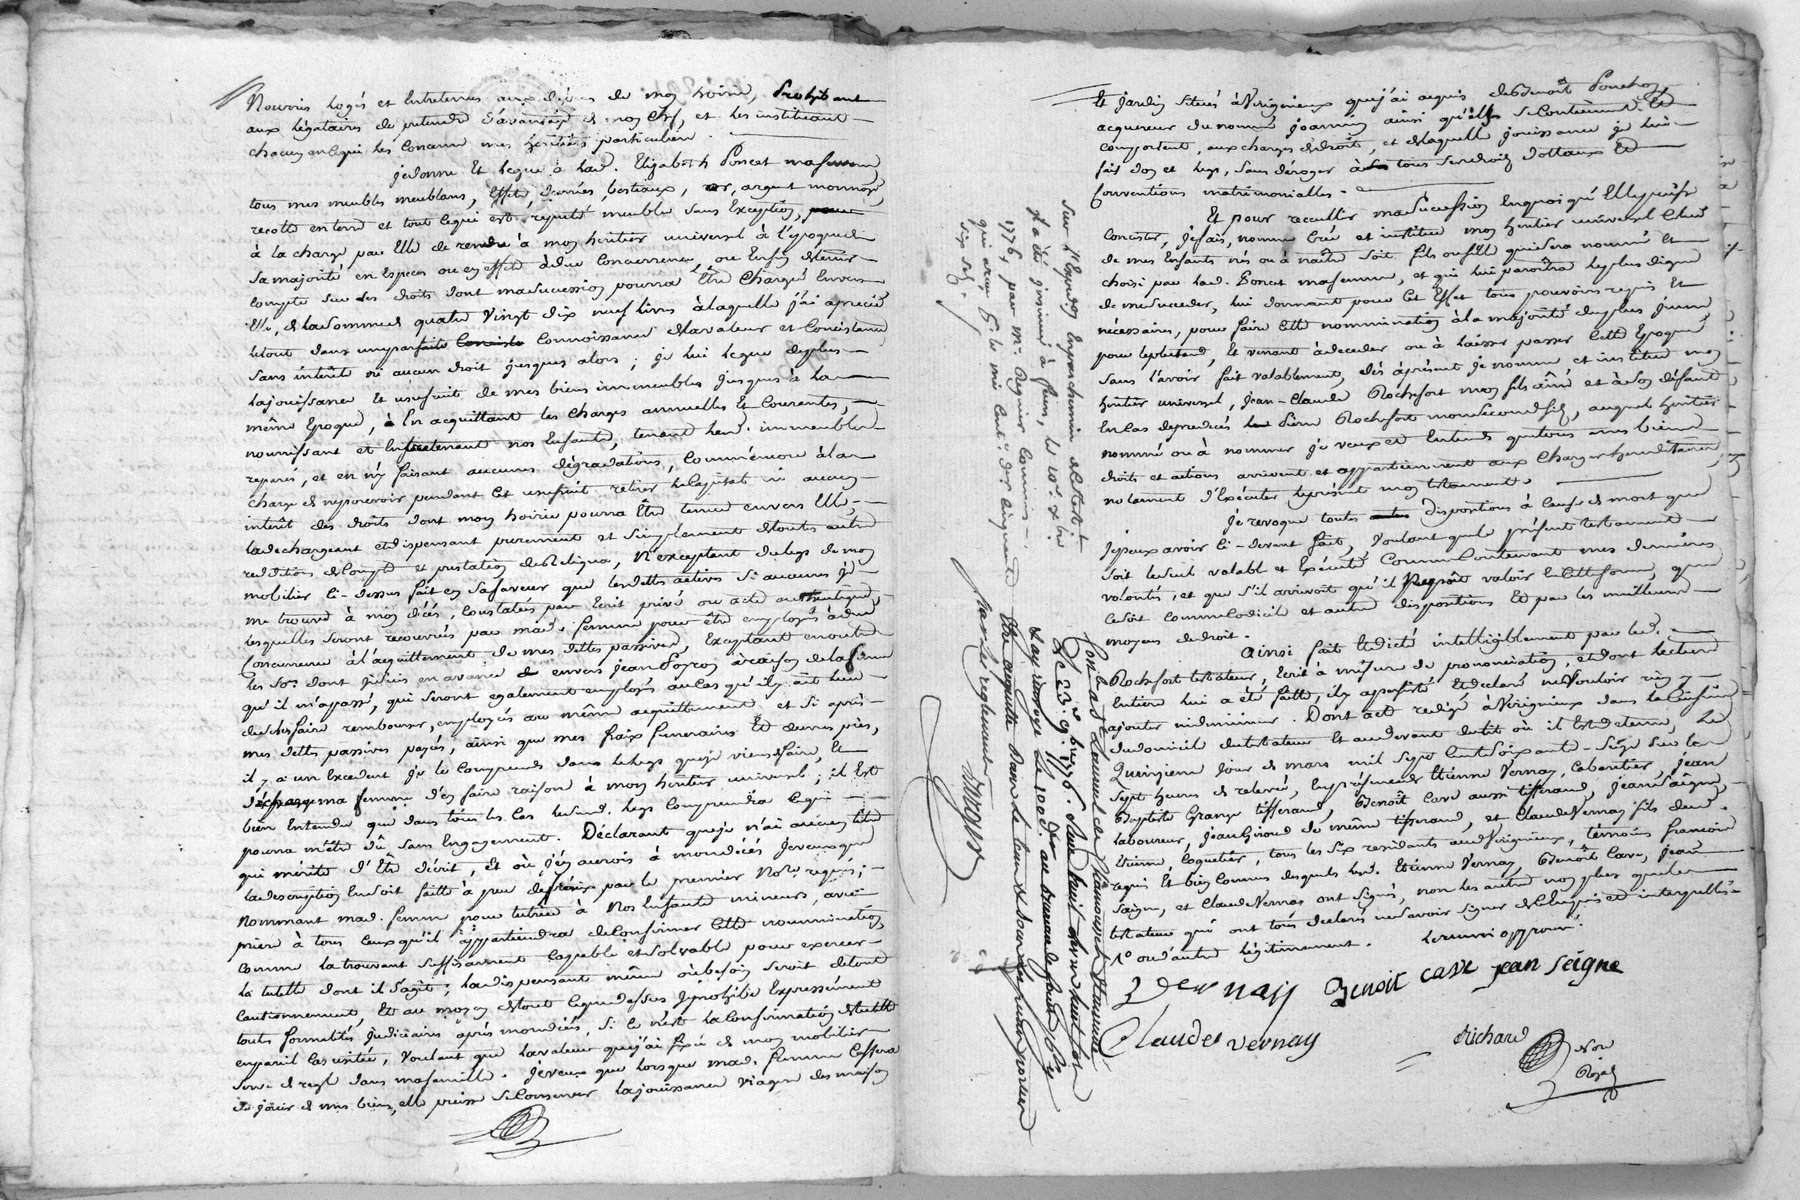 Nourris logés et Entretenus aux dépens de mon hoirie, Prohibant
aux légataires de prétendre d'avantage de mon chef, et les instituant
chacun en ce qui les concerne mes héritiers particuliers.
je donne Et legue à lad. Elizabeth Poncet ma femme
tous mes meubles meublans, effets, denrées, bestiaux, or, argent monnoyé,
recolte en terre et tout ce qui est reputé meuble sans Exception,
à la charge par Elle de rendre à mon héritier universel à l'époque de
sa majorité en Especes ou en effets à due Concurrence, ou Enfin de tenir
compte sur les droits dont ma succession pourra Etre Chargée Envers
Elle, de la somme de quatre vingt dix neuf livres à laquelle j'ai aprecié
le tout dans une parfaite connoissance de la valeur et Consistance
sans intérêt ni aucun droit jusques alors ; je lui legue de plus
la jouissance Et usufruit de mes biens immeubles jusques à la
même Epoque, à En acquittant les charges annuelles Et Courantes,
nourrissant et Entretenant nos Enfants, tenant lesd. immeubles
reparés, et en n'y faisant aucunes dégradations, Comm'encore à la
charge de ne pouvoir pendant cet usufruit retirer le Capital ni aucun
intérêt des droits dont mon hoirie pourra Etre tenue envers Elle,
la dechargeant et dispensant purement et simplement de toute autre
reddition de Compte et prestation de Reliqua, N'exceptant du legs de mon
mobilier ci-dessus fait en sa faveur que les dettes actives si aucunes je
me trouve à mon décès, constatées par Ecrit privé ou acte authentique,
lesquelles seront recouvrées par mad. femme pour être employées à due
Concurrence à l'acquittement de mes dettes passives, Exceptant en outre
les so. dont je suis en avance envers jean Poyron à raison de la ferme
qu'il m'a passé, qui seront egalement employés au cas qu'il y ait lieu
de se les faire rembourser, employés au même acquittement et si après
mes dettes passives payées, ainsi que mes fraix funeraires Et derniers,
il y a un Excedent je le comprends dans le legs que je viens de faire, Et
décharge ma femme d'en faire raison à mon héritier universel ; il Est
bien Entendu que dans tous les cas le susd. legs comprendra ce qui
pourra m'être dû sans Engagement. Déclarant que je n'ai aucun titre
qui mérite d'Etre décrit, Et où j'en aurois à mon décès je veux que
la description En soit faitte à peu de fraix par le premier No.re requis ;
Nommant mad. femme pour tutrice à Nos Enfants mineurs, avec
priere à tous Ceux qu'il appartiendra de Confirmer Cette nommination
comme la trouvant suffisamment capable et solvable pour exercer
la tutelle dont il s'agit ; la dispensant même où besoin seroit de tout
cautionnement, Et au moyen de tout ce que dessus je prohibe Expressément
toutes formalités judiciaires après mon décès, si ce n'est la Confirmation de tutelle
en pareil cas usitée, voulant que la valeur que j'ai fixé de mon mobilier
serve de regle dans ma famille. Je veux que lorsque mad. femme Cessera
de joüir de mes biens, elle puisse se Conserver la jouissance viagere des maison
Et jardin situés à Virigneux que j'ai acquis de Benoît Ponchon
acquereur du nommé joannin ainsi qu'ils se Contiennent Et
comportent, aux charges de droits, et de laquelle jouissance je lui
fais don et legs, sans déroger à tous ses droits dottaux Et
Conventions matrimonialles.
Et pour recueillir ma Succession En quoi qu'Elle puisse
Consister, je fais, nomme Crée et institue mon héritier universel Celui
de mes Enfants nés ou à naitre soit fils ou fille qui sera nommé et
choisi par lad. Poncet ma femme, et qui lui paroîtra le plus digne
de me succeder, lui donnant pour Cet Effet tous pouvoirs requis Et
nécessaires, pour faire Cette nommination à la majorité du plus jeune
pour le plus tard, Et venant à deceder ou à laisser passer Cette Epoque
sans l'avoir fait valablement, dès à présent je nomme et institue mon
héritier universel, Jean-Claude Rochefort mon fils ainé et à son défaut
En Cas de predécès Pierre Rochefort mon second fils, auquel héritier
nommé ou à nommer je veux et Entends que tous mes biens
droits et actions arrivent et appartiennent aux Charges héréditaires,
notamment d'Exécuter le présent mon testament.
Je revoque toutes dispositions à Cause de mort que
je peux avoir Ci-devant fait, voulant que le présent testament
soit le seul valable et Exécuté Comme Contenant mes dernières
volontés, et que s'il arrivoit qu'il ne peût valoir En Cette forme, que
ce soit comme codicile et autres dispositions Et par les meilleurs
moyens de droit.
Ainsi fait Et dicté intelligiblement par led.
Rochefort testateur, Ecrit à mesure de prononciation, et dont lecture
Entiere lui a été faitte, il y a persisté Et declaré ne Vouloir rien y
ajouter ni diminuer. Dont acte redigé à Virigneux dans la Cuisine
du domicile du testateur Et au devant du lit où il Est detenu, Le
Quinzieme jour de mars mil sept Cent soixante-seize sur les
sept heures de relevée, En présence de Etienne Vernay, Cabartier, jean
Baptiste Grange tisserand, Benoît Cave aussi tisserand, jean Saigne,
laboureur, jean Giroud de même tisserand, et Claude Vernay fils dud.
Etienne, Coquetier, tous les six residants aud. Virigneux, témoins
requis Et bien Connus desquels led. Etienne Vernay, Benoît Cave, jean
Saigne, et Claude Vernay ont signé, non les autres non plus que le
testateur qui ont tous déclaré ne savoir signer de Ce enquis et interpellés
legitimement.
Vernay Benoit cave jean seigne
Claude vernay
Richard
Not
Royal
Sur l'Expedon En parchemin dud. test.
Il a été insinué à feurs, le 10e Xbre
1776, par Mr. Reynier Commis.
qui a reçu
six s.
Controlé
le 23 9bre 1776. Reçu
Par Les reglements